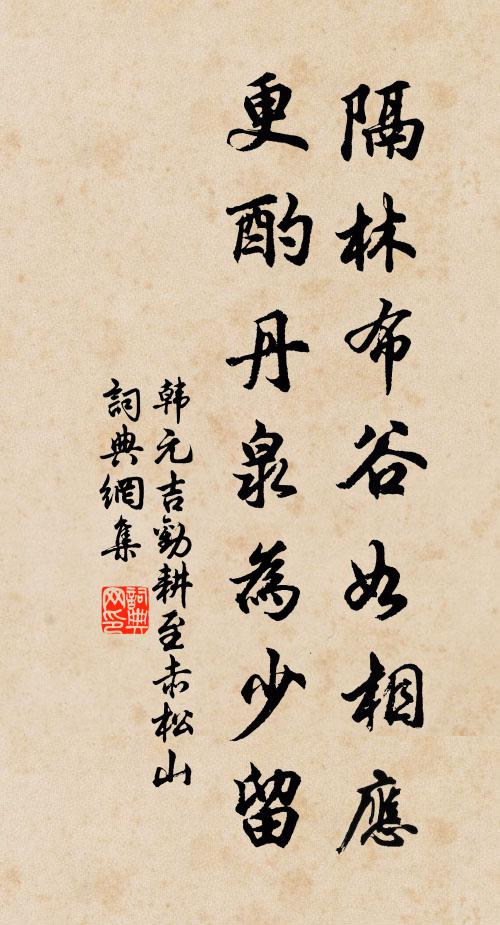 隔林布谷如相應
更酌丹泉為少留
韩元吉勸耕至赤松山
詞典網集
詞典网印